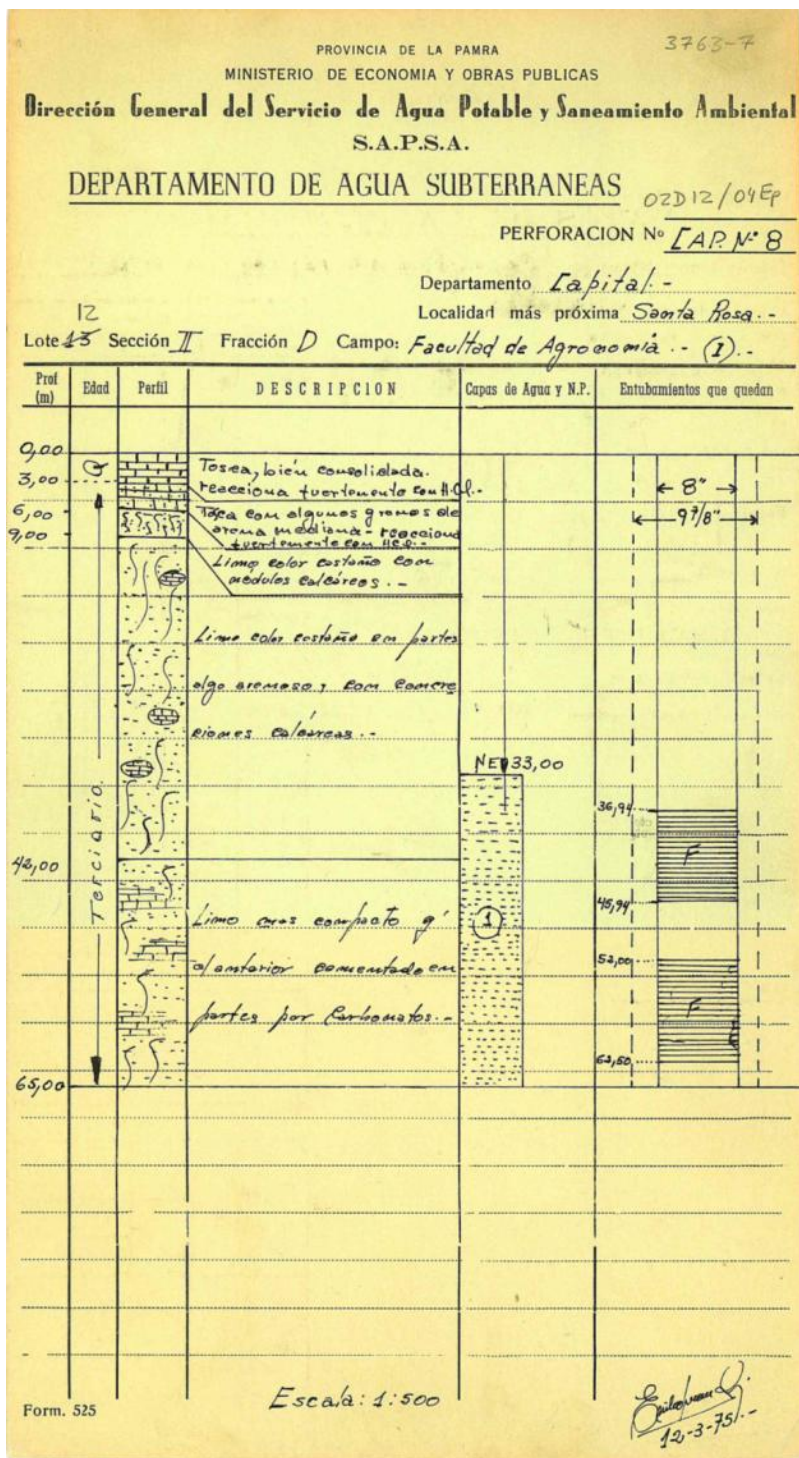 3763-7
PROVINCIA DE LA PAMRA
MINISTERIO DE ECONOMIA Y OBRAS PUBLICAS
Dirección General del Servicio de Agua Potable y Saneamiento Ambiental
S.A.P.S.A.
DEPARTAMENTO DE AGUA SUBTERRANEAS
02D12/04Ep
PERFORACION Nº CAP. Nº 8
Departamento Capital.-
Localidad más próxima Santa Rosa.-
12
Lote 13 Sección II Fracción D Campo: Facultad de Agronomía.- (1).-
Prof (m) Edad Perfil DESCRIPCION Capas de Agua y N.P. Entubamientos que quedan
0,00
3,00
6,00
9,00
Q
Tosca, bién consolidada.
reacciona fuertemente con H.Cl.-
Tosca con algunos granos de
arena mediana - reacciona
fuertemente con HCl.-
Limo color castaño con
nódulos calcáreos.-
8"
9 7/8"
Limo color castaño en partes
algo arenoso y con concre
ciones calcáreas.-
NE 33,00
36,94
F
45,94
Terciario
42,00
1
Limo mas compacto q'
al anterior cementado en
partes por Carbonatos.-
52,00
F
62,50
65,00
Escala: 1:500
Form. 525
12-3-75/.-